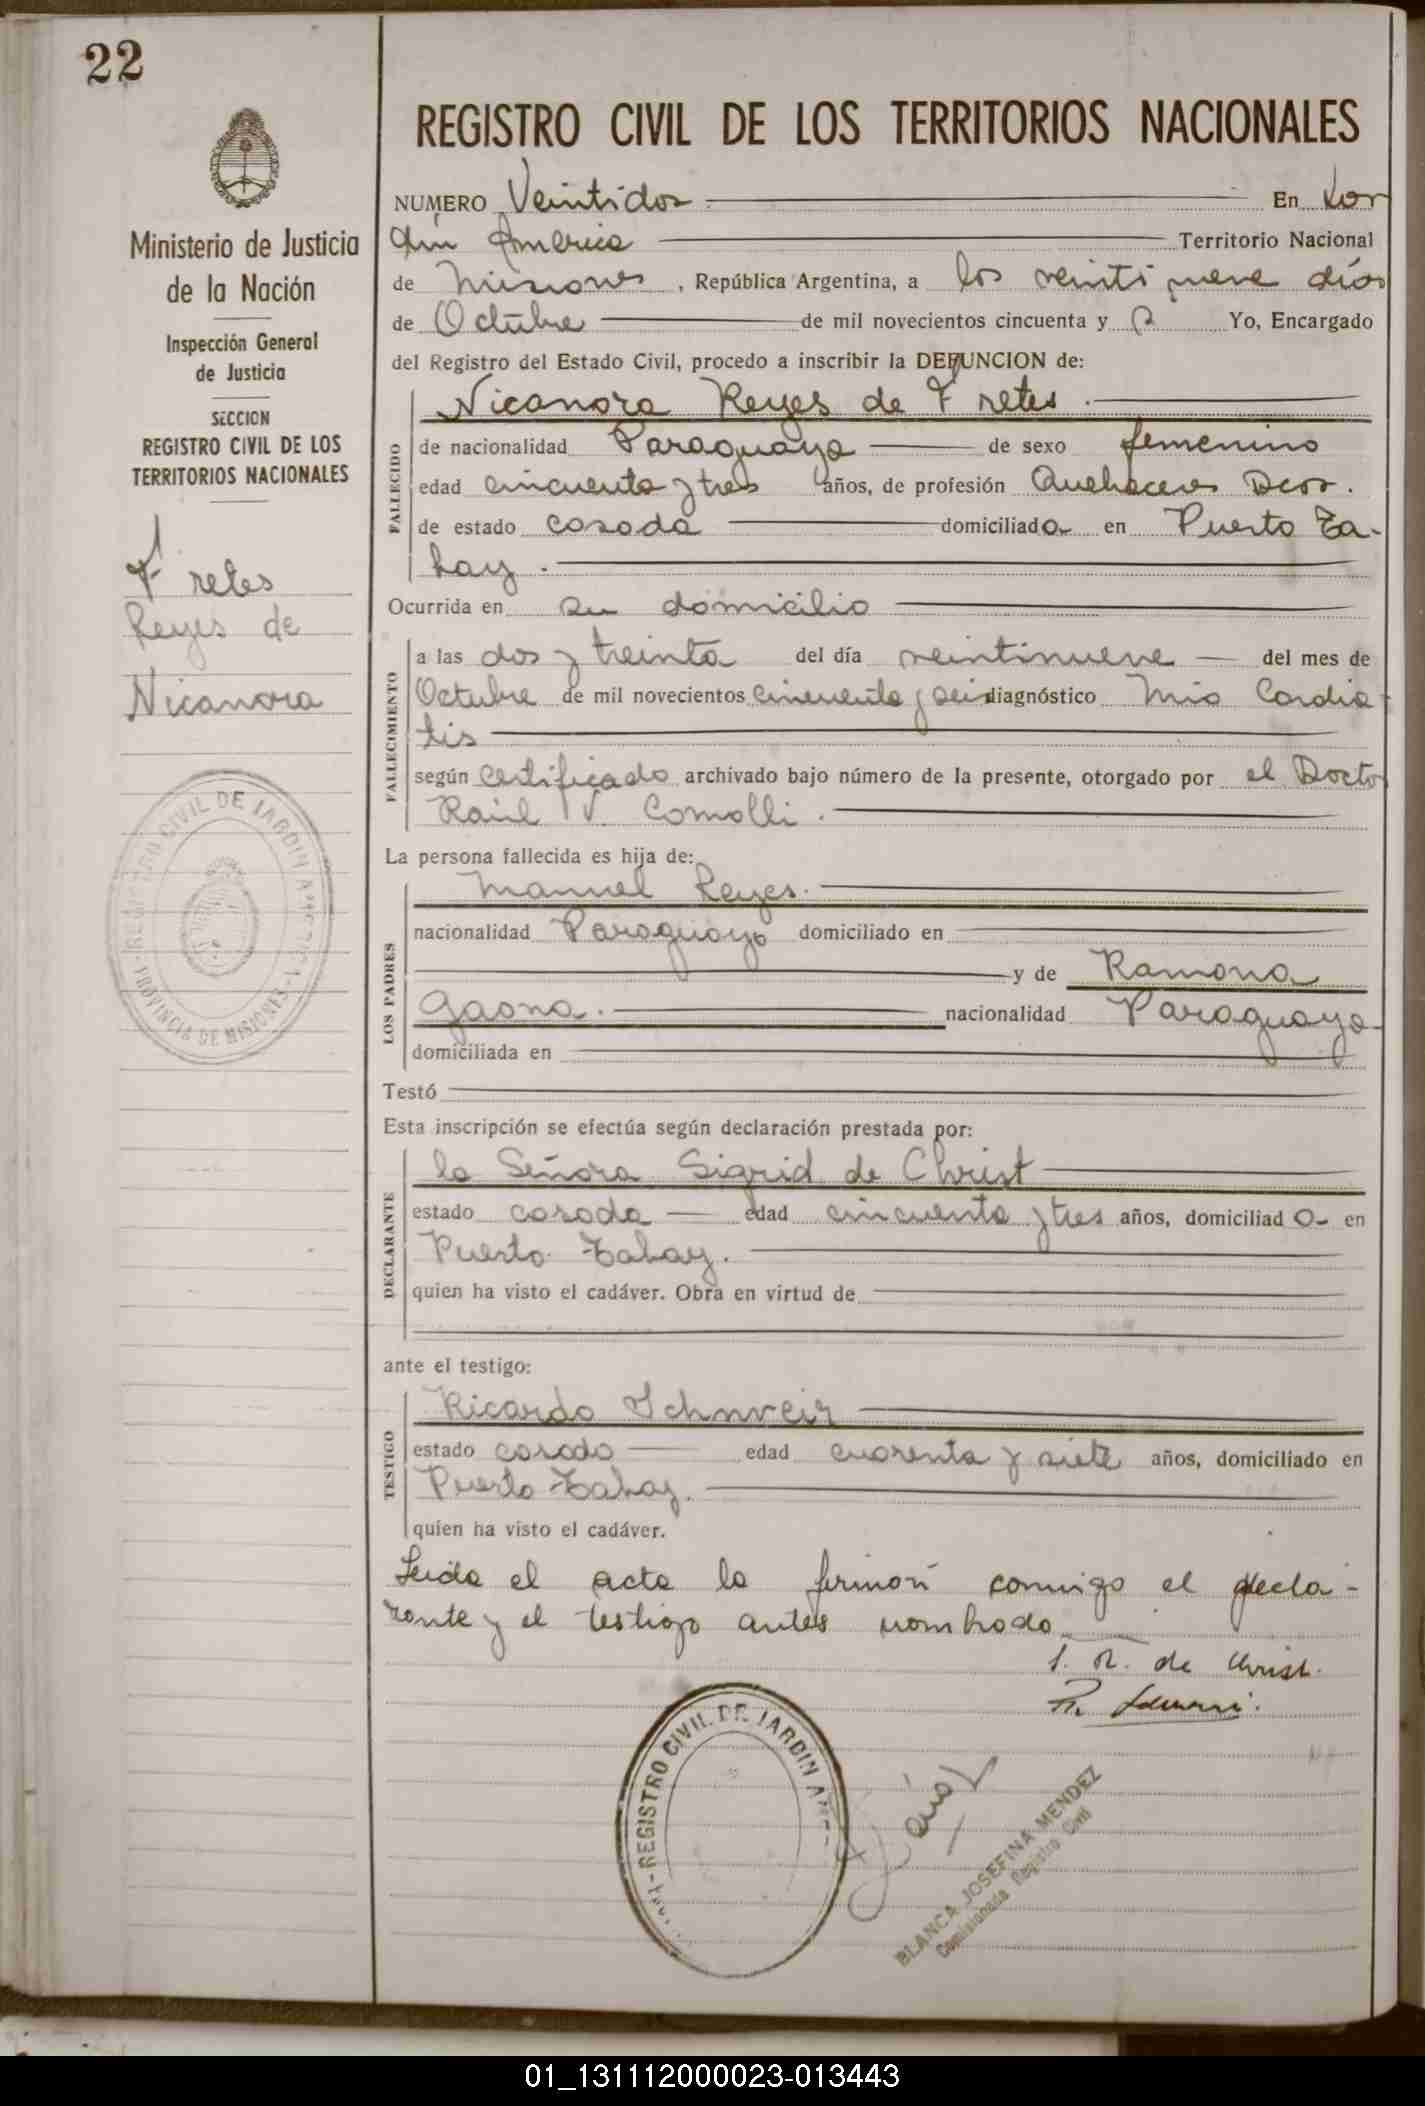 22
REGISTRO CIVIL DE LOS TERRITORIOS NACIONALES
Ministerio de Justicia
de la Nación
Inspección General
de Justicia
SECCION
REGISTRO CIVIL DE LOS
TERRITORIOS NACIONALES
Fretes
Reyes de
Nicanora
REGISTRO CIVIL DE JARDIN AMERICA
PROVINCIA DE MISIONES
NUMERO Veintidos En
América Territorio Nacional
de Misiones, República Argentina, a los veintinueve días
de Octubre de mil novecientos cincuenta y Yo, Encargado
del Registro del Estado Civil, procedo a inscribir la DEFUNCION de:
FALLECIDO
Nicanora Reyes de Fretes.
de nacionalidad Paraguaya de sexo femenino
edad cincuenta y tres años, de profesión Quehaceres Dom.
de estado casada domiciliada en Puerto Ta-
bay.
Ocurrida en su domicilio
FALLECIMIENTO
a las dos y treinta del día veintinueve del mes de
Octubre de mil novecientos cincuenta y seis diagnóstico Mio Cordia-
tis
según certificado archivado bajo número de la presente, otorgado por el Doctor
Raúl V. Comolli.
La persona fallecida es hija de:
LOS PADRES
Manuel Reyes.
nacionalidad Paraguayo domiciliado en
y de Ramona
Gaona. nacionalidad Paraguaya
domiciliada en
Testó
Esta inscripción se efectúa según declaración prestada por:
DECLARANTE
la Señora Sigrid de Christ
estado casada edad cincuenta y tres años, domiciliada en
Puerto Tabay.
quien ha visto el cadáver. Obra en virtud de
ante el testigo:
TESTIGO
Ricardo
estado casado edad cuarenta y siete años, domiciliado en
Puerto Tabay.
quien ha visto el cadáver.
Leida el acta la firman conmigo el decla-
rante y el testigo antes nombrado
de Christ.
REGISTRO CIVIL DE JARDIN AME
BLANCA JOSEFINA MENDEZ
Comisionada Registro Civil
01_131112000023-013443